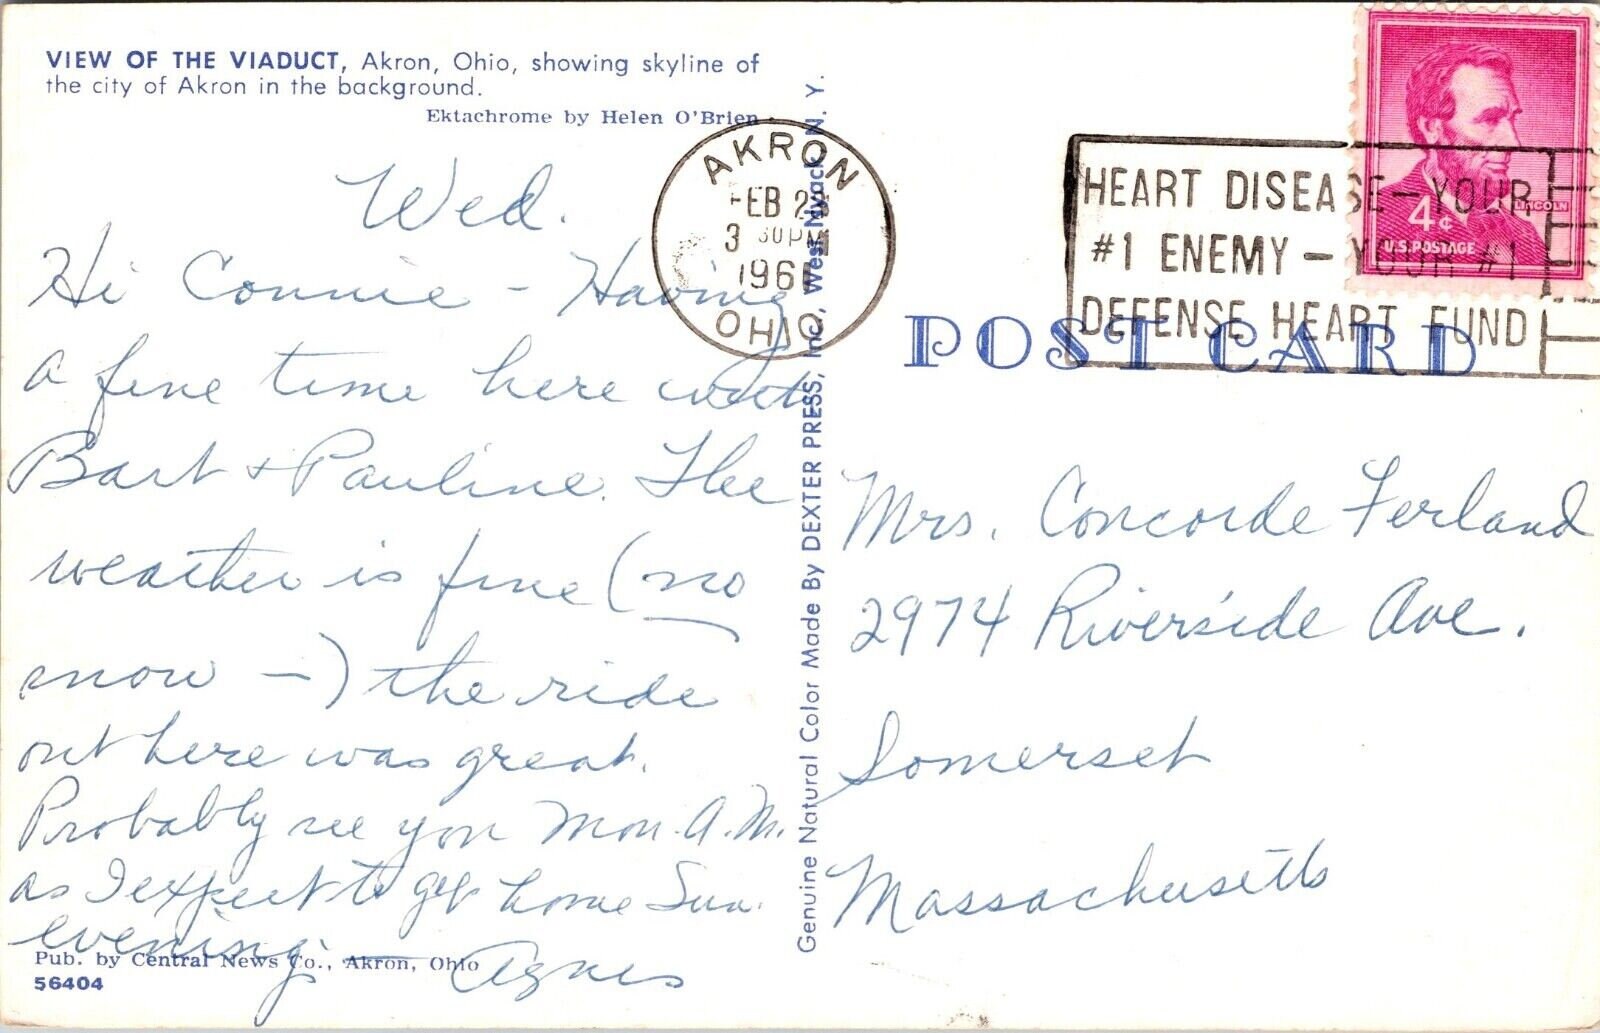 VIEW OF THE VIADUCT, Akron, Ohio, showing skyline of
the city of Akron in the background.
Ektachrome by Helen O'Brien
Wed.
Hi Connie - Having
a fine time here with
Bart + Pauline. The
weather is fine (no
snow -) the ride
out here was great.
Probably see you Mon. A.M.
as I expect to get home Sun.
evening. - Agnes
Pub. by Central News Co., Akron, Ohio
56404
Genuine Natural Color Made By DEXTER PRESS, Inc., West Nyack, N. Y.
AKRON
FEB 2
3 30 PM
196
OHIO
HEART DISEASE - YOUR
#1 ENEMY - YOUR #1
DEFENSE HEART FUND
LINCOLN
4¢
U.S. POSTAGE
POST CARD
Mrs. Concorde Ferland
2974 Riverside Ave.
Somerset
Massachusetts